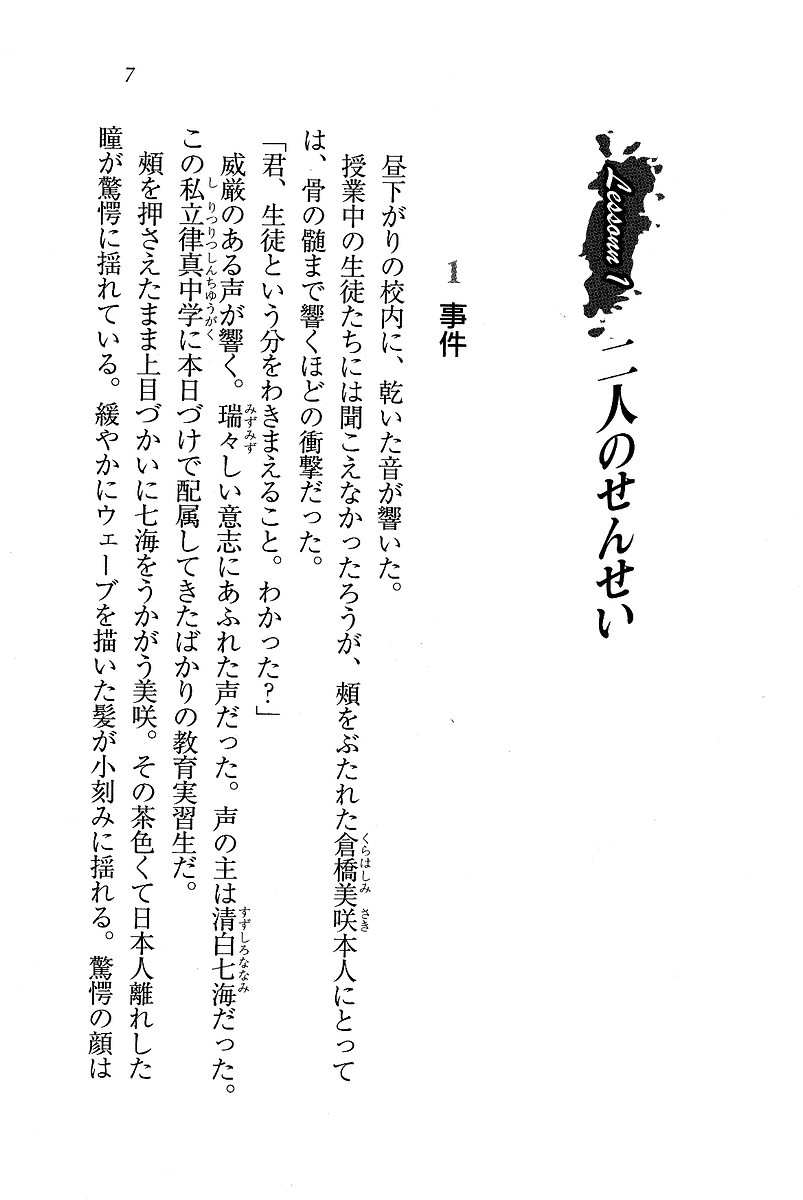 Lessonn 1
二人のせんせい
1 事件
昼下がりの校内に、乾いた音が響いた。
授業中の生徒たちには聞こえなかったろうが、頰をぶたれた倉橋美咲本人にとって
くらはしみ さき
は、骨の髄まで響くほどの衝撃だった。
「君、生徒という分をわきまえること。わかった?」
威厳のある声が響く。瑞々しい意志にあふれた声だった。声の主は清白七海だった。
みずみず
すずしろななみ
この私立律真中学に本日づけで配属してきたばかりの教育実習生だ。
し りつりつしんちゆうがく
頰を押さえたまま上目づかいに七海をうかがう美咲。その茶色くて日本人離れした
瞳が驚愕に揺れている。緩やかにウェーブを描いた髪が小刻みに揺れる。驚愕の顔は
7